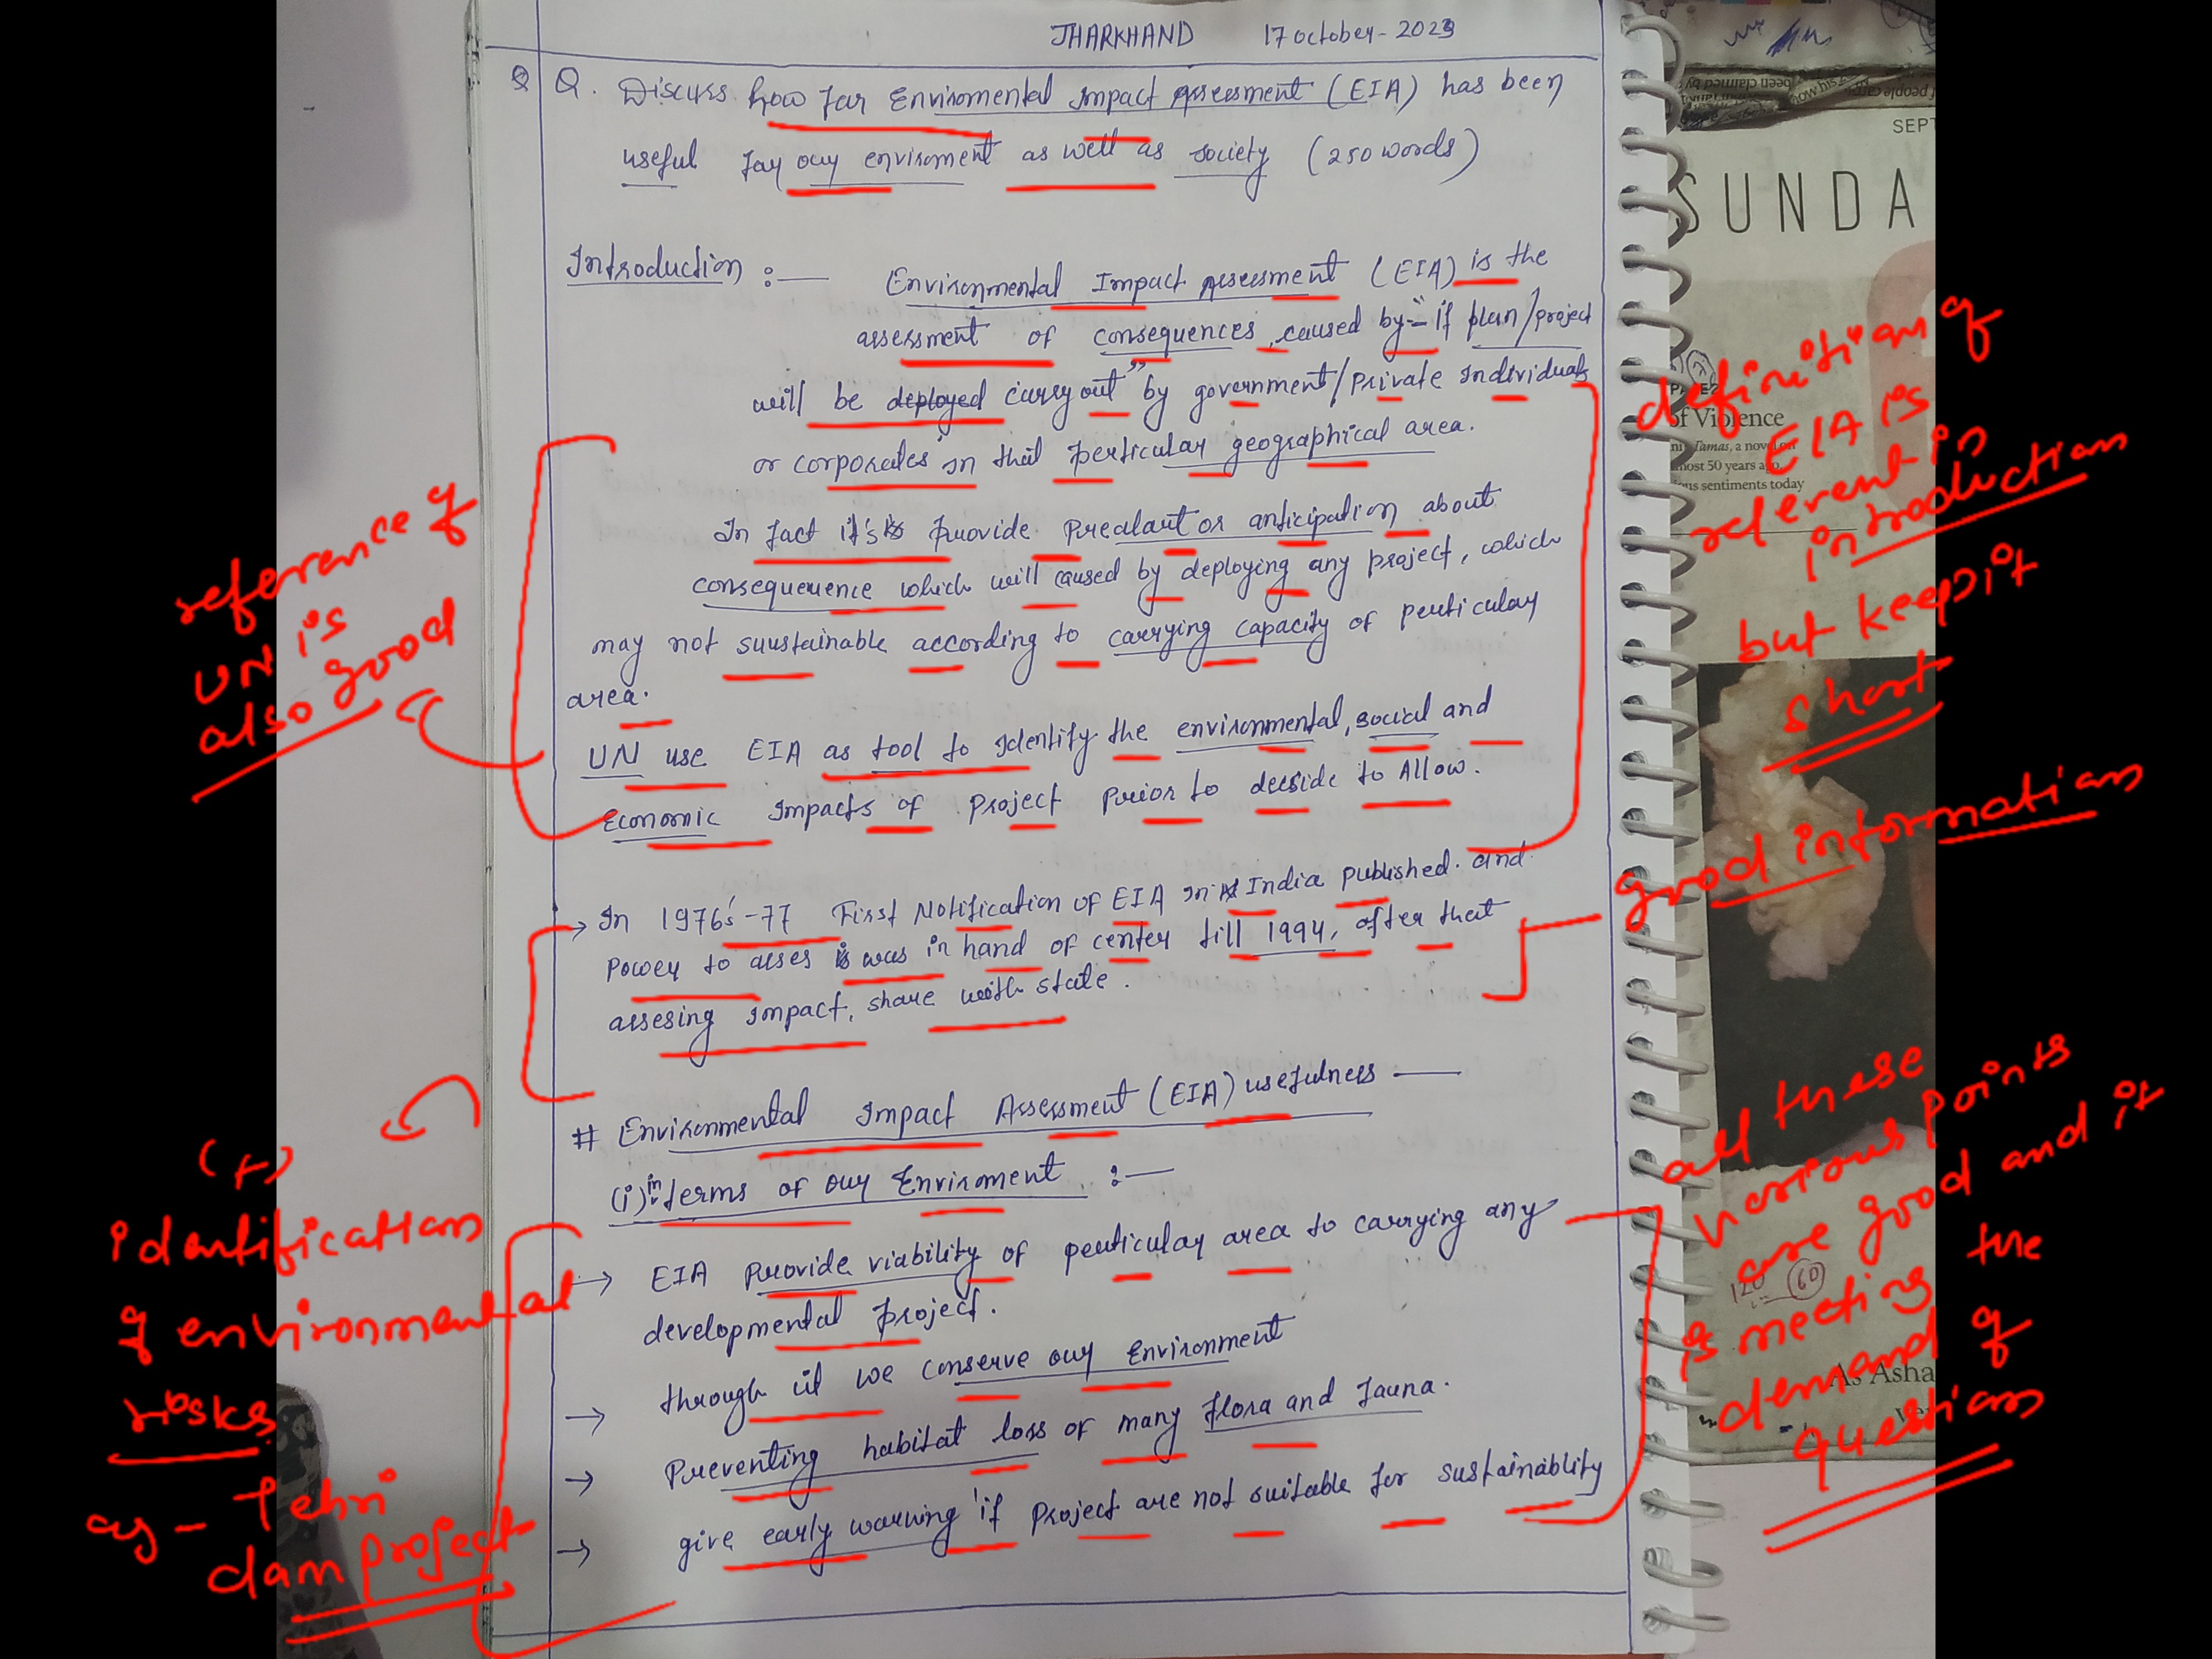 JHARKHAND 17 October - 2023
Q Q. Discuss how far Enviromental Impact Assesment (EIA) has been
useful for our enviroment as well as society (250 words)
Introduction :— Environmental Impact Assesment (EIA) is the
assessment of consequences, caused by - "if plan/project
will be deployed carry out" by government/Private Individuals
or corporates in that perticular geographical area.
In fact it's is provide prealart or anticipation about
consequeuence which will caused by deploying any project, which
may not suustainable according to carrying capacity of perticular
area.
UN use EIA as tool to Identify the environmental, social and
Economic Impacts of Project prior to decside to Allow.
→ In 1976's-77 First Notification of EIA In India published. and
Power to asses is was in hand of center till 1994, after that
assesing Impact, share with state.
# Environmental Impact Assessment (EIA) usefulness —
(i) in terms of our Enviroment :—
→ EIA Provide viability of perticular area to carrying any
developmental project.
→ through it we conserve our Environment
→ Preventing habitat loss of many flora and fauna.
→ give early warning 'if Project are not suitable for sustainablity
reference of
UN is
also good
(+)
identification
of environmental
risks
eg - Tehri
dam project
definition of
EIA is
relevent in
introduction
but keep it
short
good information
all these
various points
are good and it
is meeting the
demand of
question
SEPT
SUNDA
of Violence
Tamas, a novel on
most 50 years ago,
sentiments today
120
60
As Asha